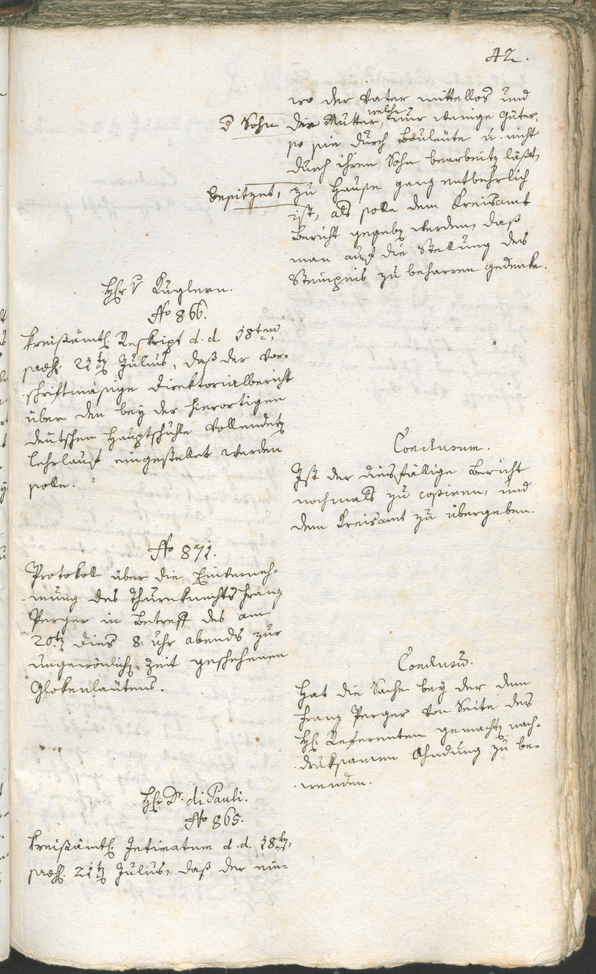 42.
wo der Vater mittellos und
d Sohn der Mutter, welche nur wenige Güter,
so sie durch Bauleute u. nicht
durch ihren Sohn bearbeitn läßt,
besitzet, zu Hause ganz entbehrlich
ist, als solle dem Kreisamt
Bericht gegebn werden, daß
man auf die Stellung des
zu beharren gedenke.
Hr. v Kuglern.
No 866.
Kreisämtl. Reskript d. d. 18ten,
præs. 21tn Julius, daß der vor-
schriftmäsige Direktorialbericht
über den bey der hierortigen
deutschen Hauptschule vollendetn
Lehrlauf eingestellet werden
solle.
Conclusum.
Ist der diesfällige Bericht
nochmals zu copiren, und
dem Kreisamt zu übergeben.
No 871.
Protokol über die Einverneh-
mung des Thurnknechts Franz
Perger in Betreff des am
20tn dies 8. Uhr abends zur
ungewönlichn Zeit geschehenen
Glokenläutens.
Conclusũ.
Hat die Sache bey der dem
Franz Perger von Seite des
H. Referenten gemachtn nach-
druksamen Ahndung zu be-
wenden.
Hr. Dr. di Pauli.
No 865.
Kreisämtl. Intimatum d. d. 18tn,
præs. 21tn Julius, daß der ein-